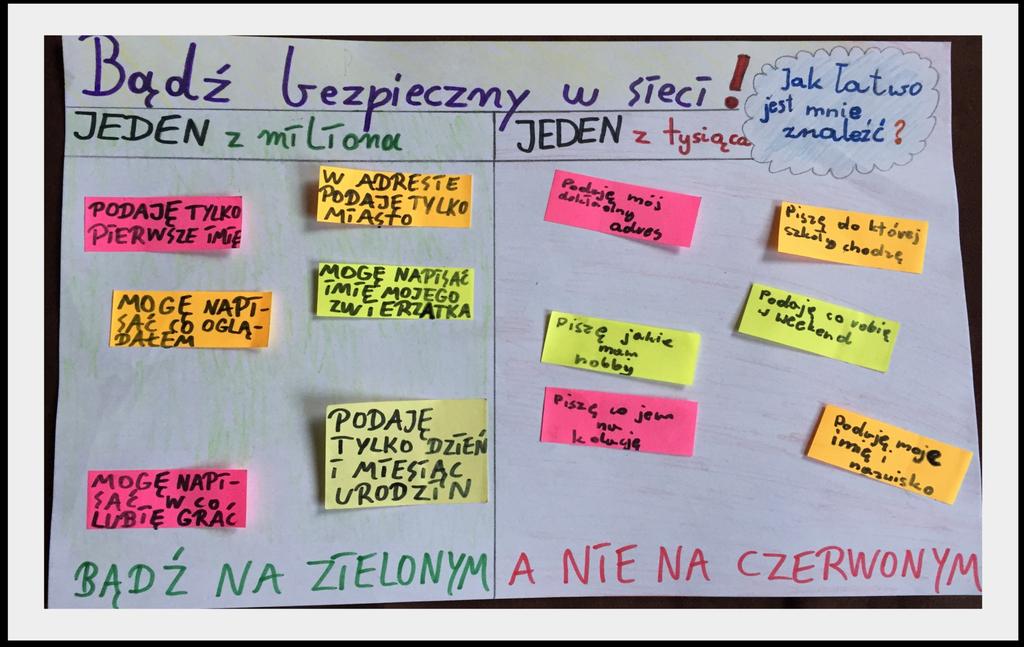 Bądź bezpieczny w sieci!
Jak łatwo
jest mnie
znaleźć?
JEDEN z miliona
PODAJĘ TYLKO
PIERWSZE IMIĘ
W ADRESIE
PODAJĘ TYLKO
MIASTO
MOGĘ NAPI-
SAĆ CO OGLĄ-
DAŁEM
MOGĘ NAPISAĆ
IMIĘ MOJEGO
ZWIERZĄTKA
MOGĘ NAPI-
SAĆ W CO
LUBIĘ GRAĆ
PODAJĘ
TYLKO DZIEŃ
I MIESIĄC
URODZIN
BĄDŹ NA ZIELONYM
JEDEN z tysiąca
Podaję mój
dokładny
adres
Piszę do której
szkoły chodzę
Piszę jakie
mam
hobby
Podaję co robię
w weekend
Piszę co jem
na
kolację
Podaję moje
imię i
nazwisko
A NIE NA CZERWONYM